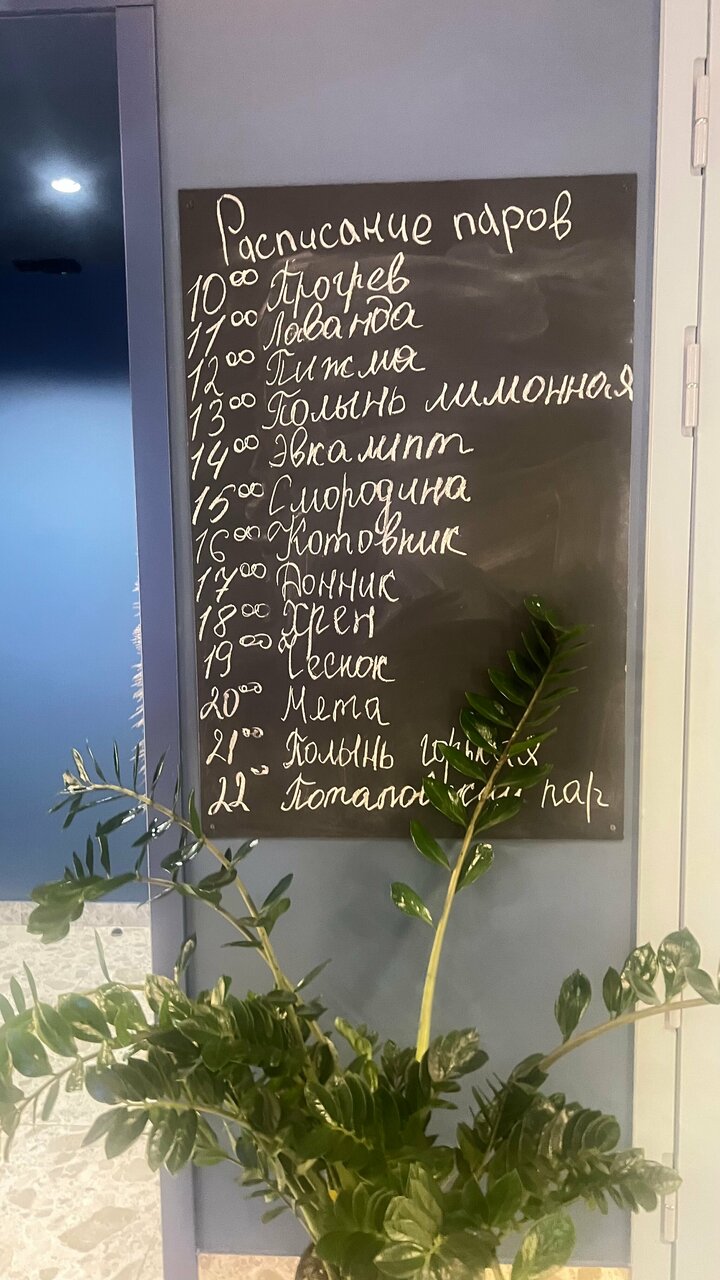 Расписание паров
10⁰⁰ Прогрев
11⁰⁰ Лаванда
12⁰⁰ Пижма
13⁰⁰ Полынь лимонная
14⁰⁰ Эвкалипт
15⁰⁰ Смородина
16⁰⁰ Котовник
17⁰⁰ Донник
18⁰⁰ Хрен
19⁰⁰ Чеснок
20⁰⁰ Мята
21⁰⁰ Полынь горькая
22⁰ пар